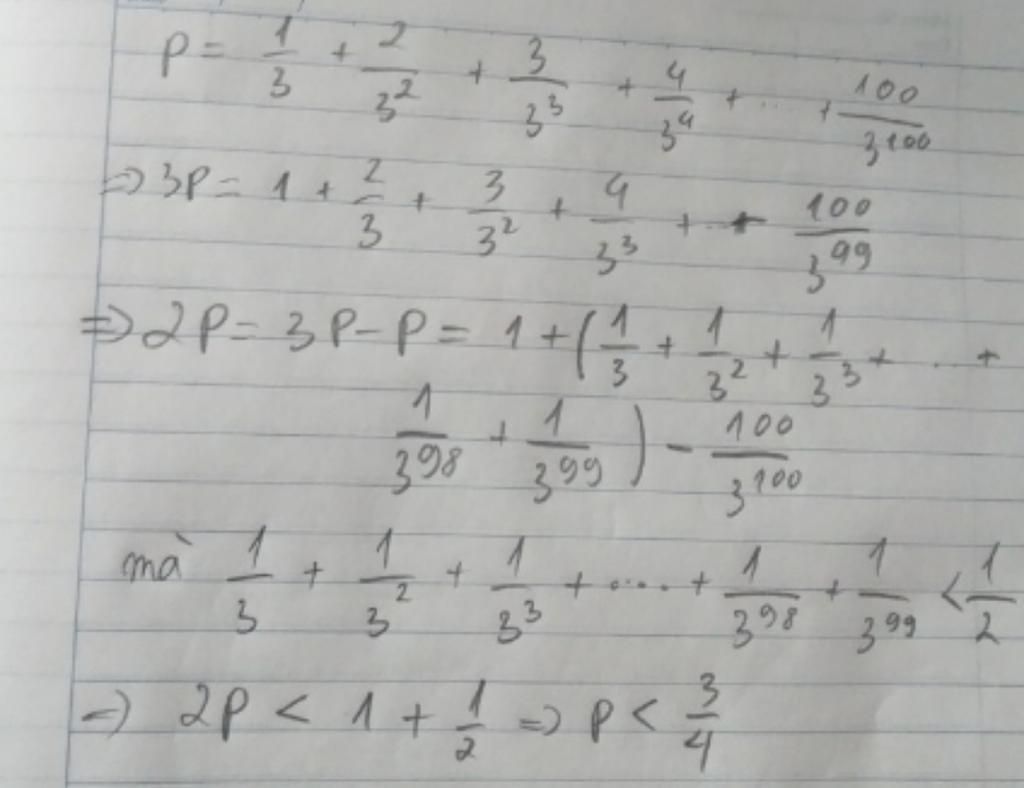 P = 1/3 + 2/3² + 3/3³ + 4/3⁴ + ... + 100/3¹⁰⁰
=> 3P = 1 + 2/3 + 3/3² + 4/3³ + .. + 100/3⁹⁹
=> 2P = 3P - P = 1 + (1/3 + 1/3² + 1/3³ + ... +
1/3⁹⁸ + 1/3⁹⁹) - 100/3¹⁰⁰
mà 1/3 + 1/3² + 1/3³ + .... + 1/3⁹⁸ + 1/3⁹⁹ < 1/2
=> 2P < 1 + 1/2 => P < 3/4